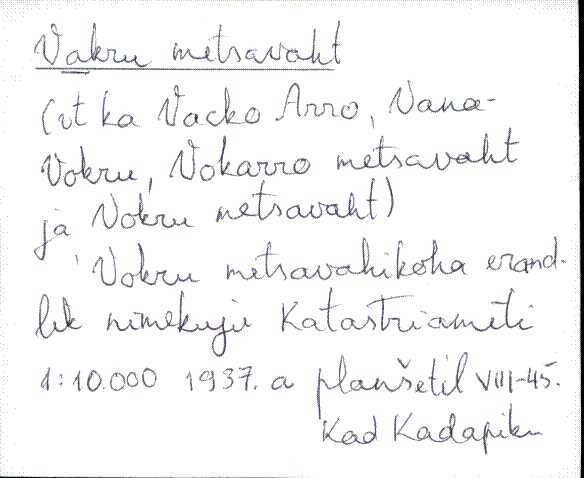 Vakru metsavaht
(vt ka Vacko Arro, Vana-
Vokru, Vokarro metsavaht
ja Vokru metsavaht)
Vokru metsavahikoha erand-
lik nimekuju Katastriameti
1:10.000 1937. a planšetil VIII-45.
Kad Kadapiku